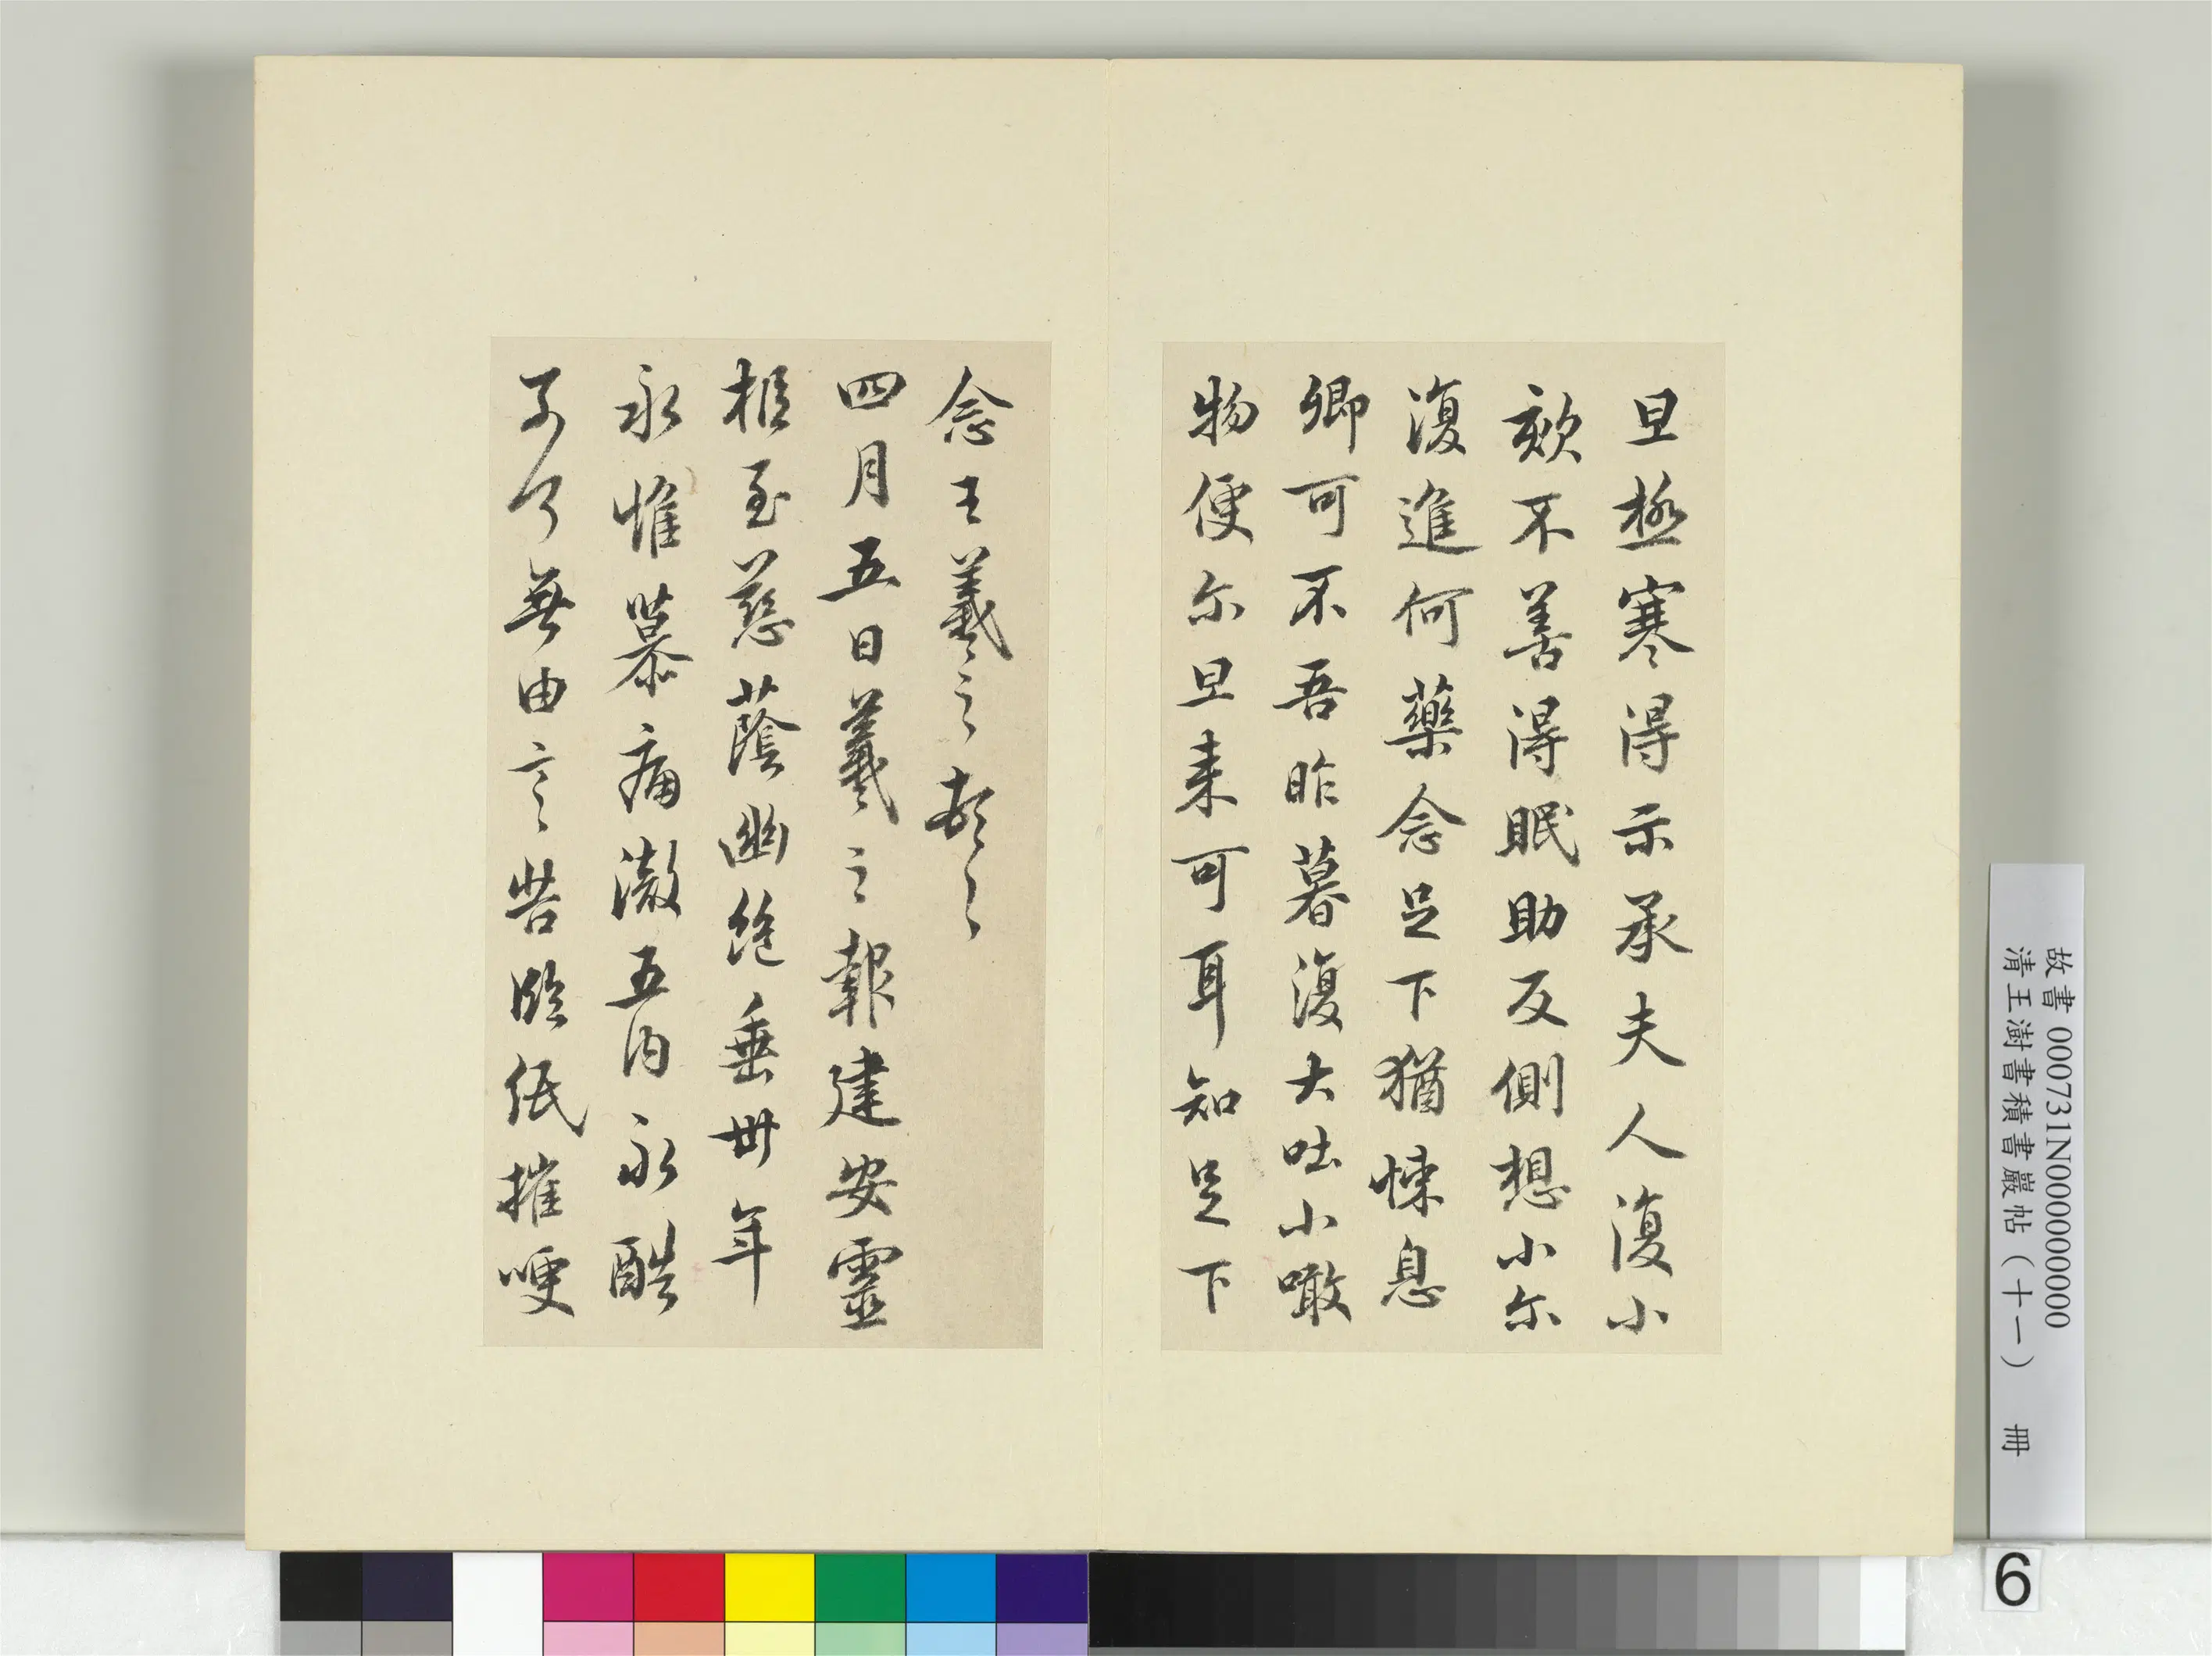 旦極寒得示承夫人復小
欬不善得眠助反側想小尔
復進何藥念足下猶悚息
卿可不吾昨暮復大吐小噉
物便尔旦来可耳知足下
念王羲之頓〻
四月五日羲之報建安靈
柩至慈蔭幽絕垂卌年
永惟慕痛澈五內永酷
奈何無由言告臨紙摧哽
故書 000731N000000000
清王澍書積書巖帖(十一) 冊
6